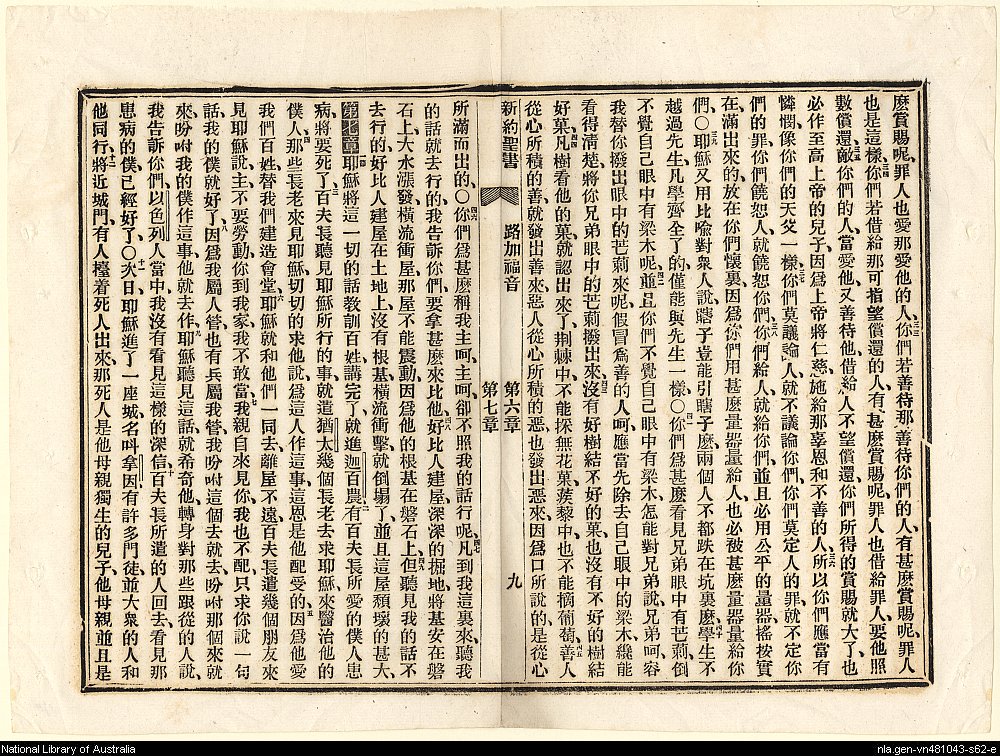 麽賞賜呢、罪人也愛那愛他的人、你們若善待那善待你們的人、有甚麽賞賜呢、罪人
也是這樣、你們若借給那可指望償還的人、有甚麽賞賜呢、罪人也借給罪人、要他照
數償還、敵你們的人、當愛他、又善待他、借給人不望償還、你們所得的賞賜就大了、也
必作至高上帝的兒子、因爲上帝將仁慈、施給那辜恩和不善的人、所以你們應當有
憐憫、像你們的天父一樣、你們莫議論人、就不議論你們、你們莫定人的罪、就不定你
們的罪、你們饒恕人、就饒恕你們、你們給人、就給你們、並且必用公平的量器、搖按實
在、滿出來的、放在你們懷裏、因爲你們用甚麽量器量給人、也必被甚麽量器量給你
們、〇耶穌又用比喩對衆人說、瞎子豈能引瞎子麽、兩個人不都跌在坑裏麽、學生不
越過先生、凡學齊全了的、僅能與先生一樣、〇你們爲甚麽看見兄弟眼中有芒刺、倒
不覺自己眼中有梁木呢、並且你們不覺自己眼中有梁木、怎能對兄弟說、兄弟呵、容
我替你撥出眼中的芒刺來呢、假冒爲善的人呵、應當先除去自己眼中的梁木、纔能
看得淸楚、將你兄弟眼中的芒刺撥出來、沒有好樹結不好的菓、也沒有不好的樹結
好菓、凡樹看他的菓、就認出來了、荆棘中不能採無花菓、蒺藜中也不能摘葡萄、善人
從心所積的善、就發出善來、惡人從心所積的惡、也發出惡來、因爲口所說的、是從心
新約聖書 路加福音 第六章 第七章 九
所滿而出的、〇你們爲甚麽稱我主呵、主呵、卻不照我的話行呢、凡到我這裏來、聽我
的話就去行的、我告訴你們、要拿甚麽來比他、好比人建屋、深深的掘地、將基安在磐
石上、大水漲發、橫流衝屋、那屋不能震動、因爲他的根基在磐石上、但聽見我的話不
去行的、好比人建屋在土地上沒有根基、橫流衝擊、就倒塌了、並且這屋頹壞的甚大、
第七章 耶穌將這一切的話、敎訓百姓、講完了、就進迦百農、有百夫長所愛的僕人患
病、將要死了、百夫長聽見耶穌所行的事、就遣猶太幾個長老、去求耶穌來醫治他的
僕人、那些長老來見耶穌、切切的求他說、爲這人作這事、這恩是他配受的、因爲他愛
我們百姓、替我們建造會堂、耶穌就和他們一同去、離屋不遠、百夫長遣幾個朋友來
見耶穌說、主不要勞動、你到我家我不敢當、我親自來見你、我也不配、只求你說一句
話、我的僕就好了、因爲我屬人管、也有兵屬我管、我吩咐這個去就去、吩咐那個來就
來、吩咐我的僕作這事、他就去作、耶穌聽見這話、就希奇他、轉身對那些跟從的人說、
我告訴你們、以色列人當中、我沒有看見這樣的深信、百夫長所遣的人回去、看見那
患病的僕、已經好了、〇次日耶穌進了一座城、名叫拿因、有許多門徒、並大衆的人、和
他同行、將近城門、有人擡着死人出來、那死人是他母親獨生的兒子、他母親並且是
National Library of Australia
nla.gen-vn481043-s62-e